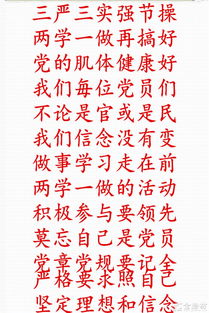 三严三实强节操
两学一做再搞好
党的肌体健康好
我们每位党员们
不论是官或是民
我们信念没有变
做事学习走在前
两学一做的活动
积极参与要领先
莫忘自己是党员
党章党规要记全
严格要求照自己
坚定理想和信念